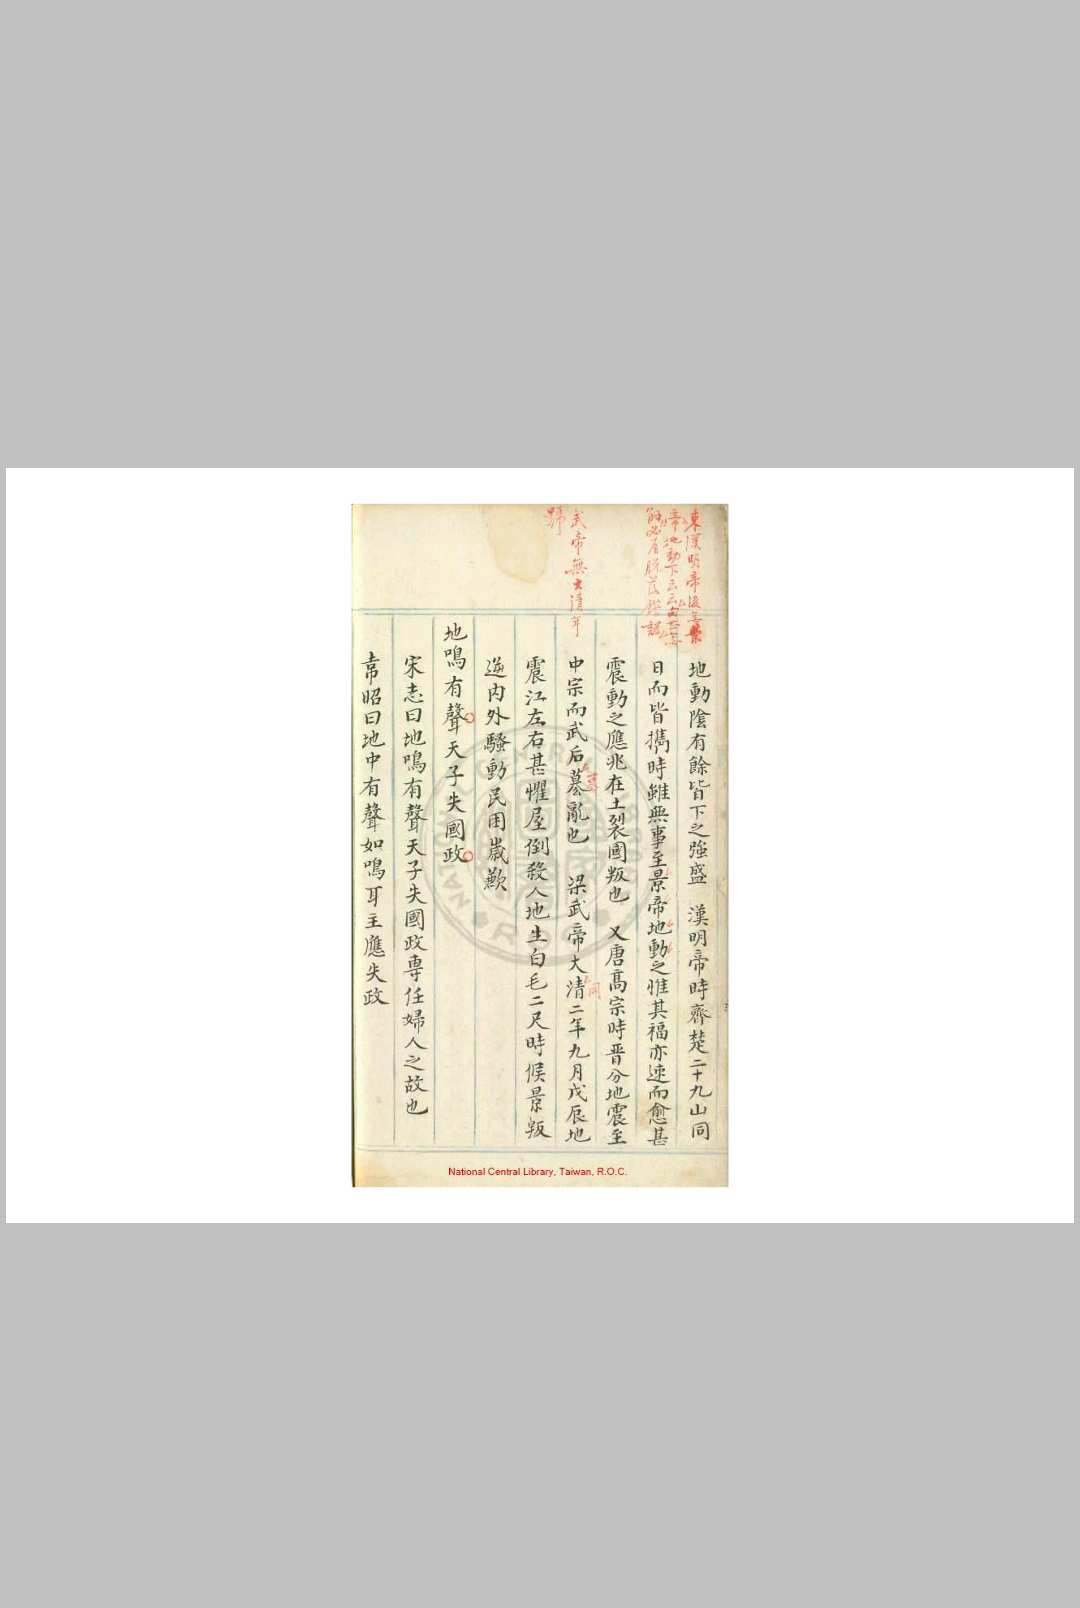 東漢明帝後無景
帝地動下云云
解必有脫落錯誤
武帝無大清年
號
地動陰有餘皆下之強盛　漢明帝時齊楚二十九山同
日而皆攜時雖無事至景帝地動之惟其福亦速而愈甚
震動之應兆在土裂國叛也　又唐高宗時晉分地震至
中宗而武后墓亂也　梁武帝大清二年九月戊辰地
震江左右甚懼屋倒殺人地生白毛二尺時候景叛
逆內外騷動民困歲歉
地鳴有聲天子失國政
宋志曰地鳴有聲天子失國政專任婦人之故也
韋昭曰地中有聲如鳴耳主應失政
NATIONAL CENTRAL LIBRARY
R.O.C.
National Central Library, Taiwan, R.O.C.